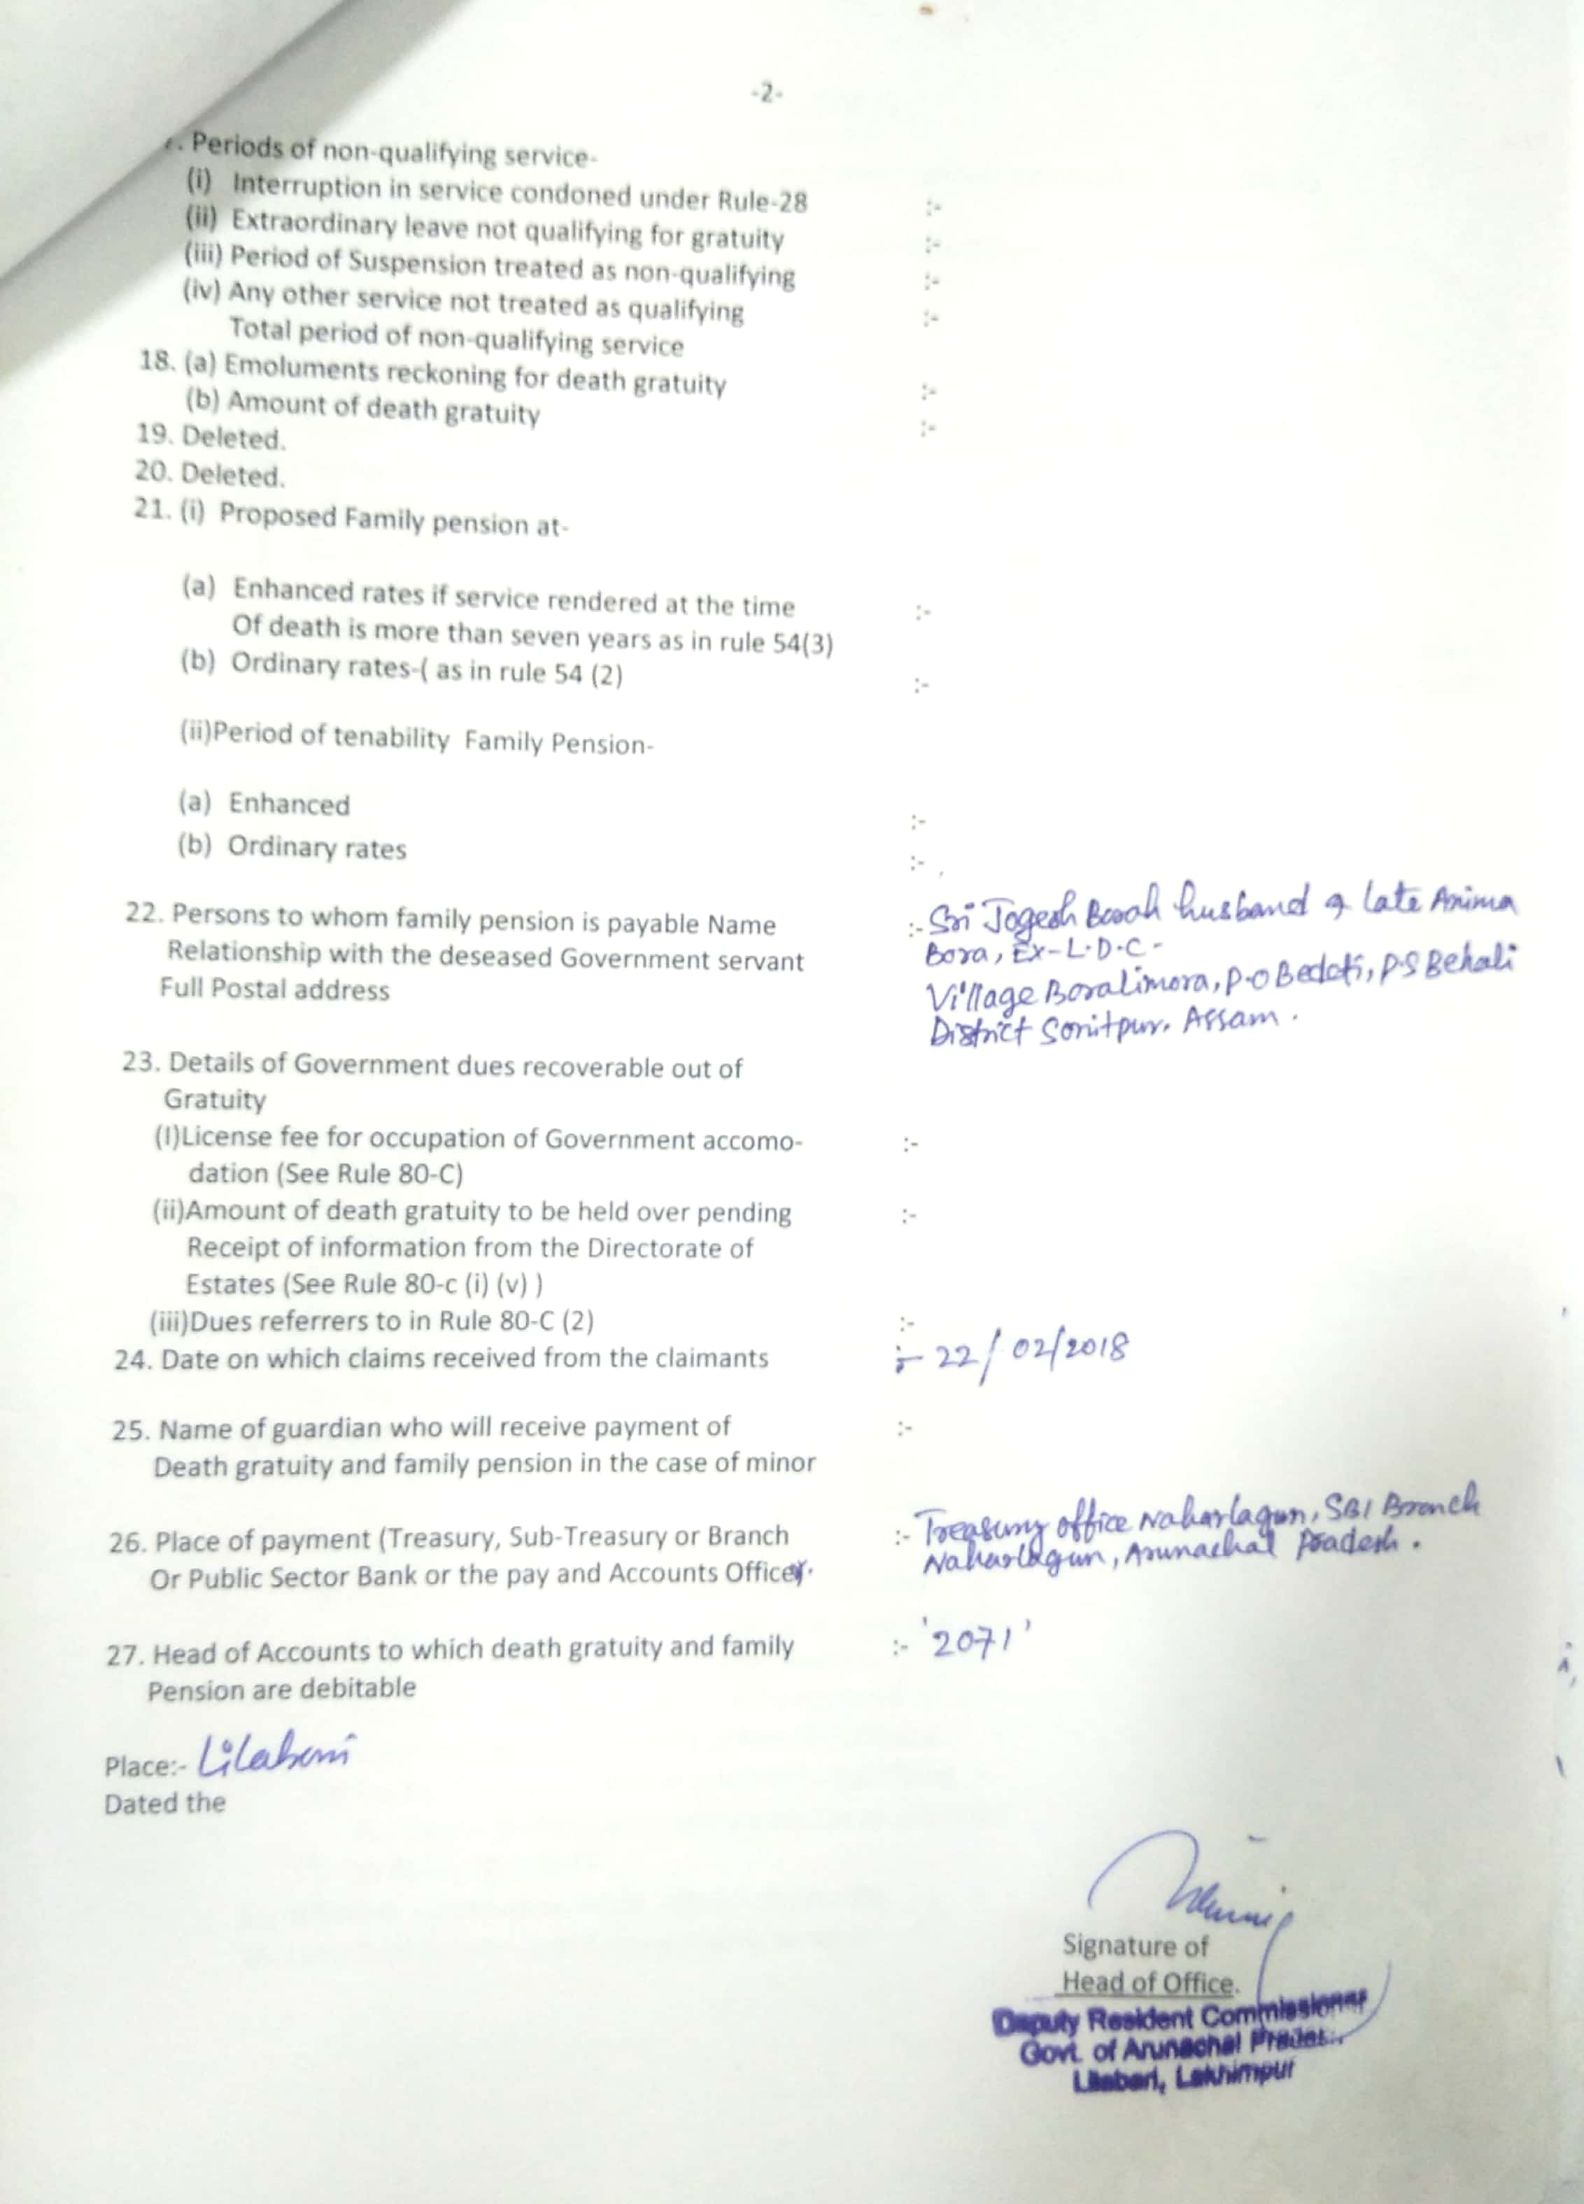 -2-
. Periods of non-qualifying service-
(i) Interruption in service condoned under Rule-28 :-
(ii) Extraordinary leave not qualifying for gratuity :-
(iii) Period of Suspension treated as non-qualifying :-
(iv) Any other service not treated as qualifying :-
Total period of non-qualifying service
18. (a) Emoluments reckoning for death gratuity :-
(b) Amount of death gratuity :-
19. Deleted.
20. Deleted.
21. (i) Proposed Family pension at-
(a) Enhanced rates if service rendered at the time :-
Of death is more than seven years as in rule 54(3)
(b) Ordinary rates-( as in rule 54 (2) :-
(ii)Period of tenability Family Pension-
(a) Enhanced :-
(b) Ordinary rates :-
22. Persons to whom family pension is payable Name :- Sri Jogesh Borah husband of late Anima
Relationship with the deseased Government servant Bora, Ex-L.D.C-
Full Postal address Village Boralimora, P.O Bedeti, P.S Behali
District Sonitpur. Assam.
23. Details of Government dues recoverable out of
Gratuity
(I)License fee for occupation of Government accomo- :-
dation (See Rule 80-C)
(ii)Amount of death gratuity to be held over pending :-
Receipt of information from the Directorate of
Estates (See Rule 80-c (i) (v) )
(iii)Dues referrers to in Rule 80-C (2) :-
24. Date on which claims received from the claimants :- 22/02/2018
25. Name of guardian who will receive payment of :-
Death gratuity and family pension in the case of minor
26. Place of payment (Treasury, Sub-Treasury or Branch :- Treasury office Naharlagun, SBI Branch
Or Public Sector Bank or the pay and Accounts Office). Naharlagun, Arunachal Pradesh.
27. Head of Accounts to which death gratuity and family :- '2071'
Pension are debitable
Place:- Lilabari
Dated the
Signature of
Head of Office.
Deputy Resident Commissioner
Govt. of Arunachal Pradesh
Lilabari, Lakhimpur